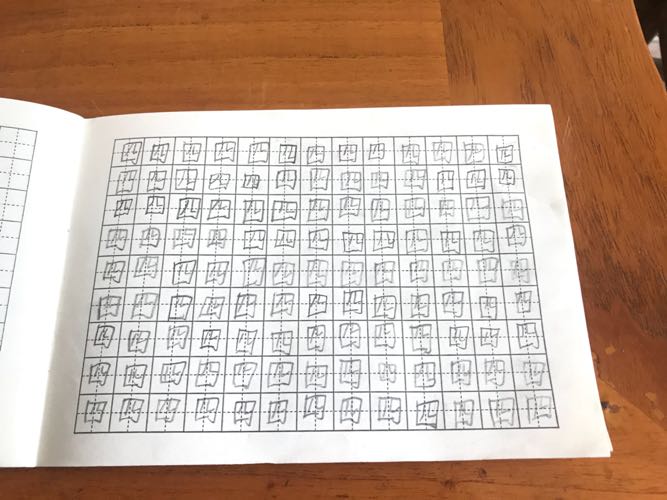 四四四四四四四四四四四四四
四四四四四四四四四四四四四
四四四四四四四四四四四四四
四四四四四四四四四四四四四
四四四四四四四四四四四四四
四四四四四四四四四四四四四
四四四四四四四四四四四四四
四四四四四四四四四四四四四
四四四四四四四四四四四四四